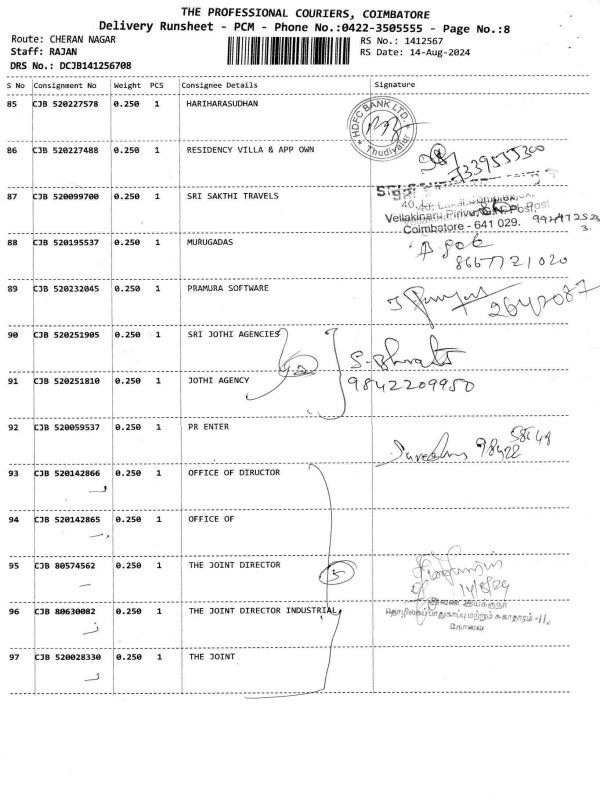 THE PROFESSIONAL COURIERS, COIMBATORE
Delivery Runsheet - PCM - Phone No.:0422-3505555 - Page No.:8
Route: CHERAN NAGAR
RS No.: 1412567
Staff: RAJAN
RS Date: 14-Aug-2024
DRS No.: DCJB141256708
S No Consignment No Weight PCS Consignee Details Signature
85 CJB 520227578 0.250 1 HARIHARASUDHAN
HDFC BANK LTD. * Thudiyalur *
86 CJB 520227488 0.250 1 RESIDENCY VILLA & APP OWN
7339555300
87 CJB 520099700 0.250 1 SRI SAKTHI TRAVELS
Coimbatore - 641 029.
88 CJB 520195537 0.250 1 MURUGADAS
8667721020
89 CJB 520232045 0.250 1 PRAMURA SOFTWARE
2642087
90 CJB 520251905 0.250 1 SRI JOTHI AGENCIES
S. Bharath
91 CJB 520251810 0.250 1 JOTHI AGENCY
9842209950
92 CJB 520059537 0.250 1 PR ENTER
93 CJB 520142866 0.250 1 OFFICE OF DIRUCTOR
94 CJB 520142865 0.250 1 OFFICE OF
95 CJB 80574562 0.250 1 THE JOINT DIRECTOR
5
14/8/24
96 CJB 80630082 0.250 1 THE JOINT DIRECTOR INDUSTRIAL
கோவை
97 CJB 520028330 0.250 1 THE JOINT